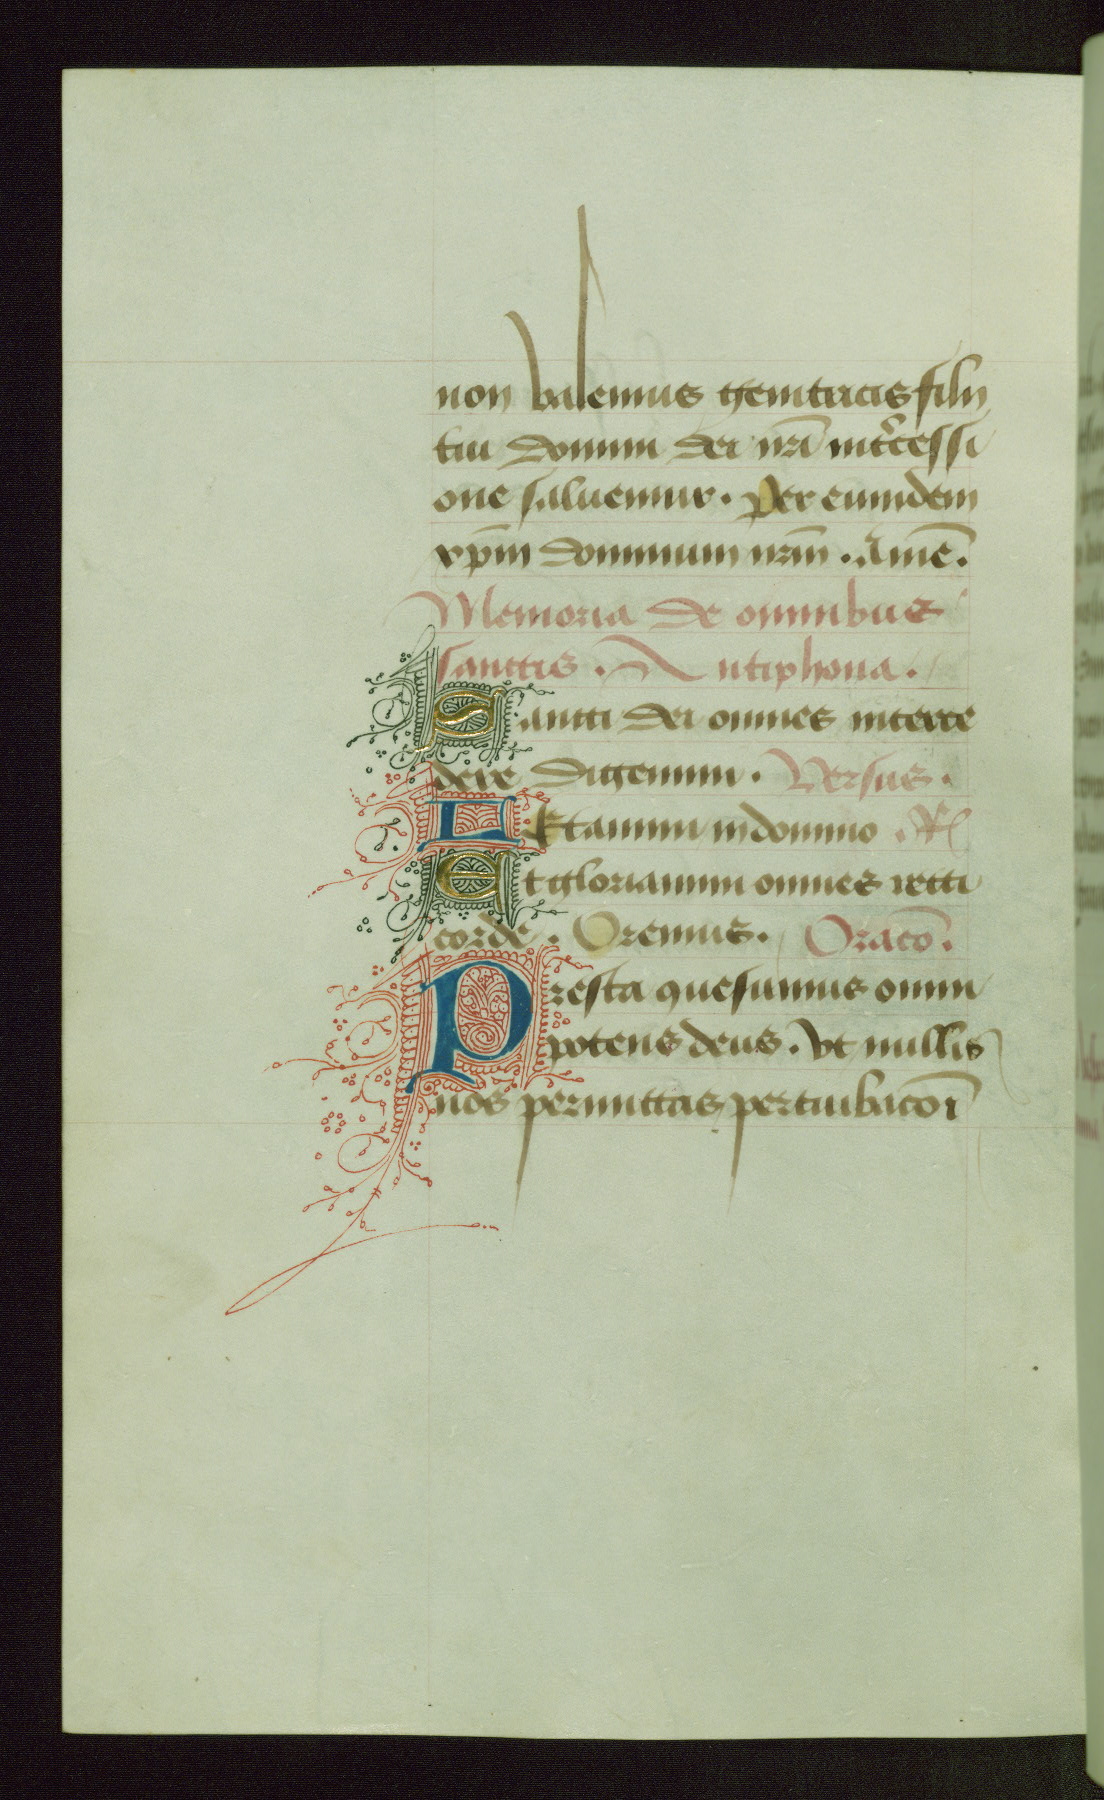 non valemus genitricis filii
tui domini dei nr̄i int̾cessi
one saluemur. Per eumdem
xp̄m dominum nr̄m. Amē.
Memoria de omnibus
sanctis. Antiphona.
Sancti dei omnes interce
dere dignemini. Versus.
Letamini in domino. R̷
Et gloriamini omnes recti
corde. Oremus. Oracō.
Presta quesumus omni
potens deus. Vt nullis
nos permittas perturbacōi